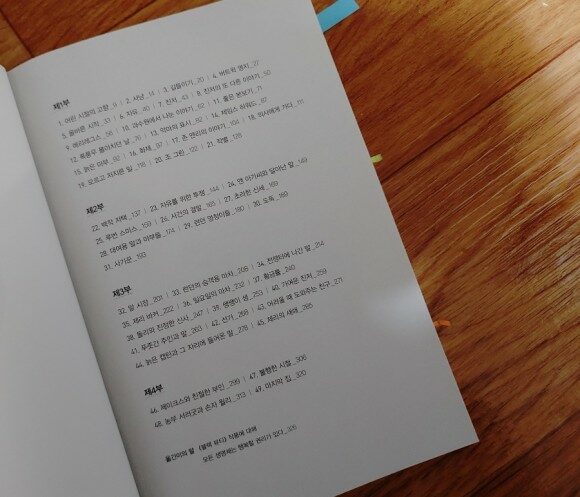 제1부
1. 어린 시절의 고향_11 | 2. 사냥_14 | 3. 길들이기_20 | 4. 버트윅 영지_27
5. 올바른 시작_33 | 6. 자유_40 | 7. 진저_43 | 8. 진저의 또 다른 이야기_50
9. 메리레그스_58 | 10. 과수원에서 나눈 이야기_62 | 11. 좋은 본보기_71
12. 폭풍우 몰아치던 날_76 | 13. 악마의 표시_82 | 14. 제임스 하워드_87
15. 늙은 마부_92 | 16. 화재_97 | 17. 존 맨리의 이야기_104 | 18. 의사에게 가다_111
19. 모르고 저지른 일_116 | 20. 조 그린_122 | 21. 작별_126
제2부
22. 백작 저택_137 | 23. 자유를 위한 투쟁_144 | 24. 앤 아가씨와 달아난 말_149
25. 루번 스미스_159 | 26. 사건의 결말_165 | 27. 초라한 신세_169
28. 대여용 말과 마부들_174 | 29. 런던 멍청이들_180 | 30. 도둑_189
31. 사기꾼_193
제3부
32. 말 시장_201 | 33. 런던의 승객용 마차_208 | 34. 전쟁터에 나간 말_214
35. 제리 바커_222 | 36. 일요일의 마차_232 | 37. 황금률_240
38. 돌리와 진정한 신사_247 | 39. 꾀쟁이 샘_253 | 40. 가여운 진저_259
41. 푸줏간 주인과 말_263 | 42. 선거_268 | 43. 어려울 때 도와주는 친구_271
44. 늙은 캡틴과 그 자리에 들어온 말_278 | 45. 제리의 새해_285
제4부
46. 제이크스와 친절한 부인_299 | 47. 불행한 시절_306
48. 농부 서러굿과 손자 윌리_313 | 49. 마지막 집_320
옮긴이의 말 《블랙 뷰티》 작품에 대해
모든 생명체는 행복할 권리가 있다_326